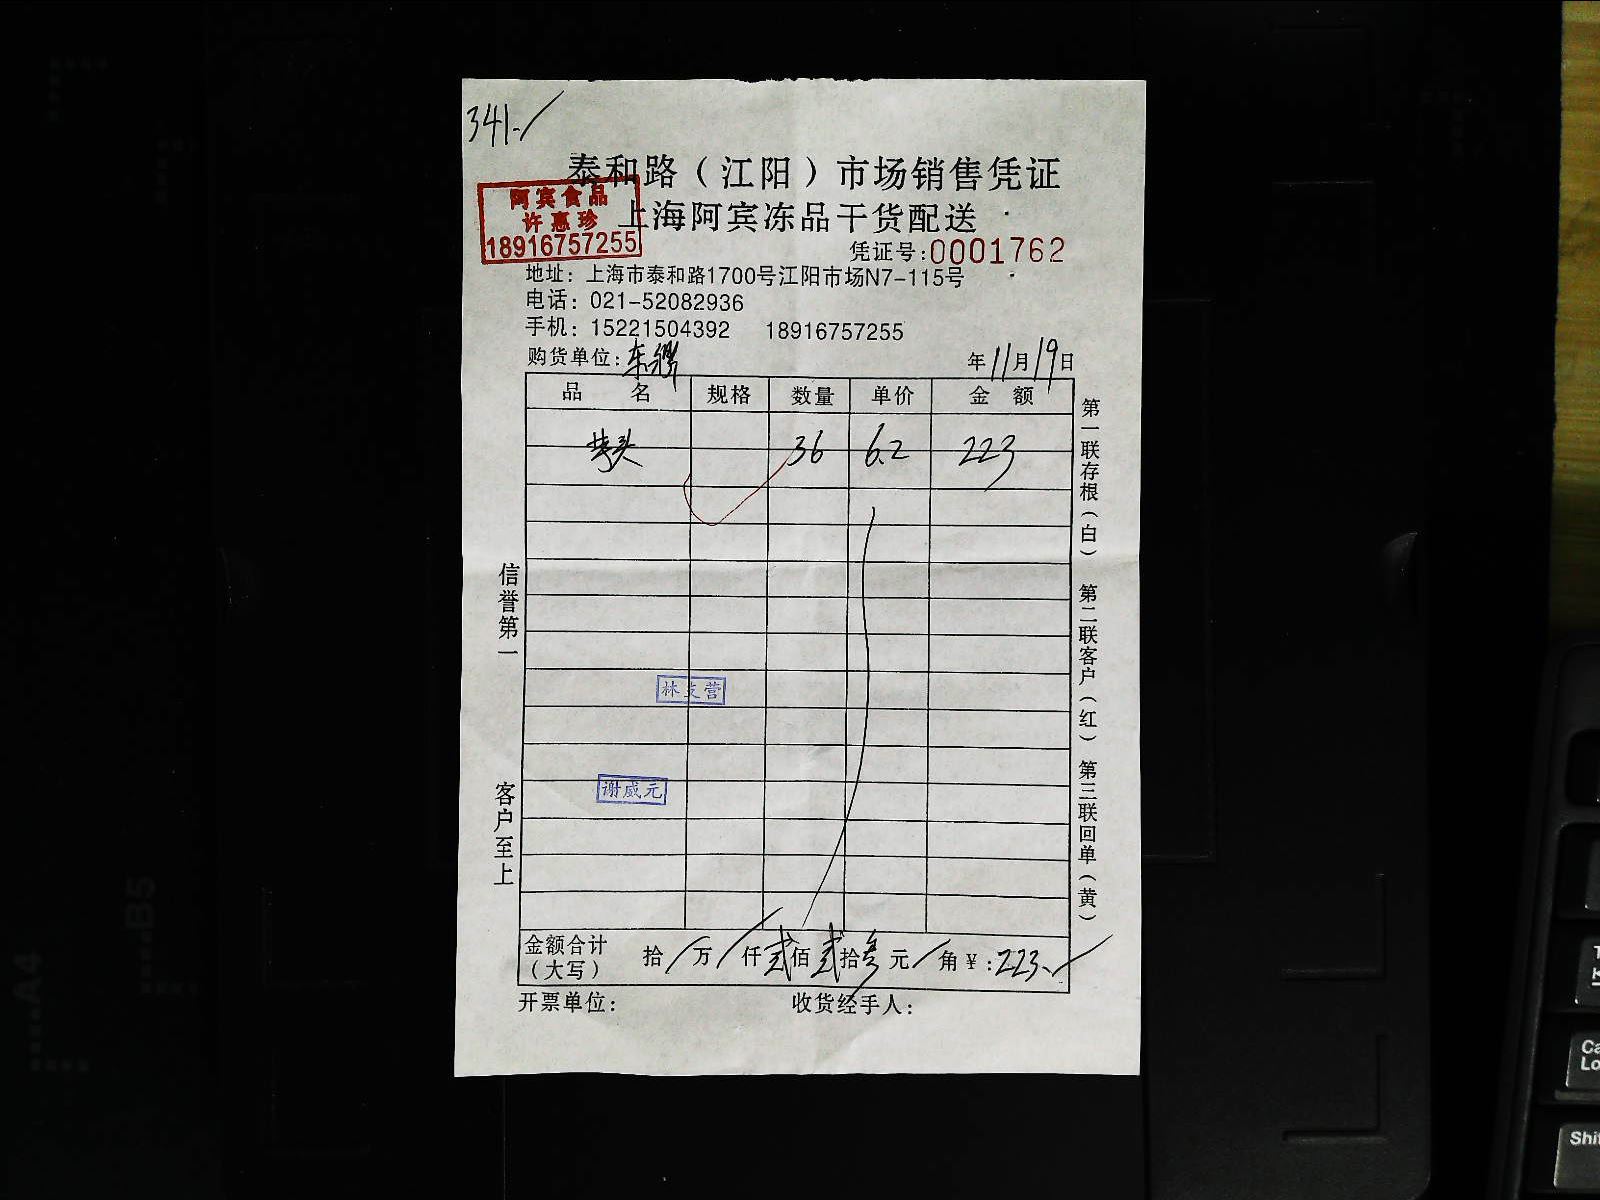 341.-/
泰和路（江阳）市场销售凭证
阿宾食品
许惠珍
18916757255
上海阿宾冻品干货配送
凭证号:0001762
地址：上海市泰和路1700号江阳市场N7-115号
电话：021-52082936
手机：15221504392 18916757255
购货单位: 年11月19日
品 名 规格 数量 单价 金 额
芋头 36 6.2 223
林支营
谢威元
金额合计（大写） 拾/万/仟贰佰贰拾叁元/角￥:223.-/
开票单位: 收货经手人:
信誉第一 客户至上
第一联存根（白） 第二联客户（红） 第三联回单（黄）
A4
B5
Shi